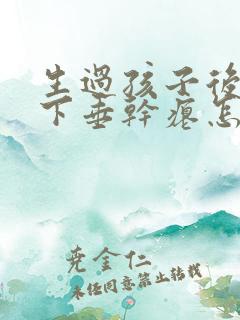 生過孩子後
下垂幹癟怎
堯金仁
未经同意禁止转载